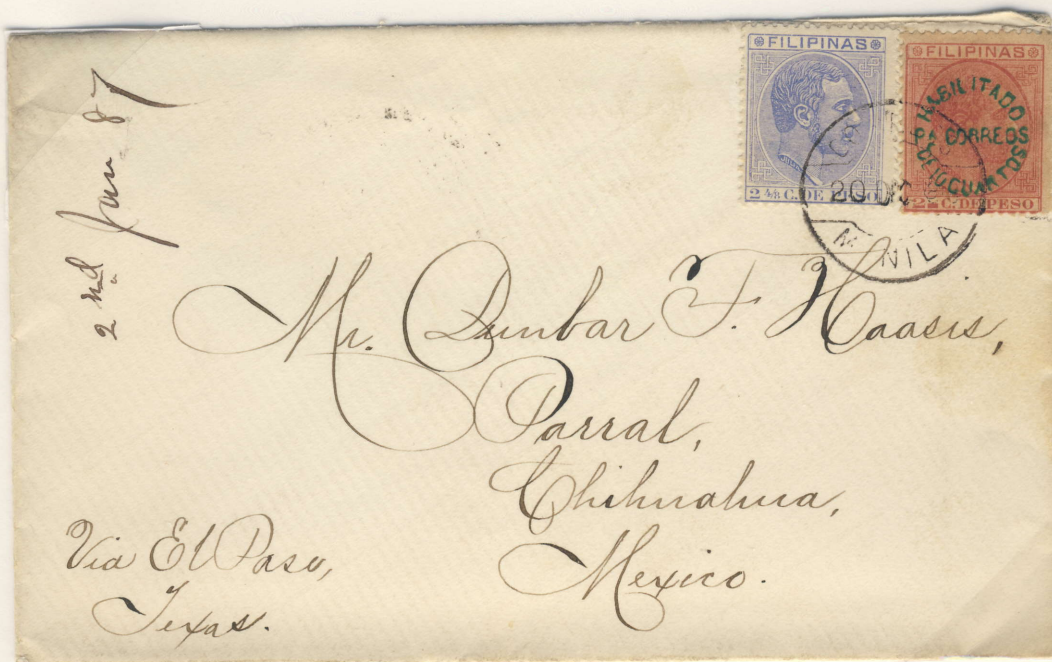 2nd Jan 87
FILIPINAS
2 4/8 C. DE PESO
FILIPINAS
HABILITADO
PA CORREOS
CUARTOS
C. DE PESO
20 DIC
MANILA
Mr. Dunbar F. Haasis,
Parral,
Chihuahua,
Mexico.
Via El Paso,
Texas.